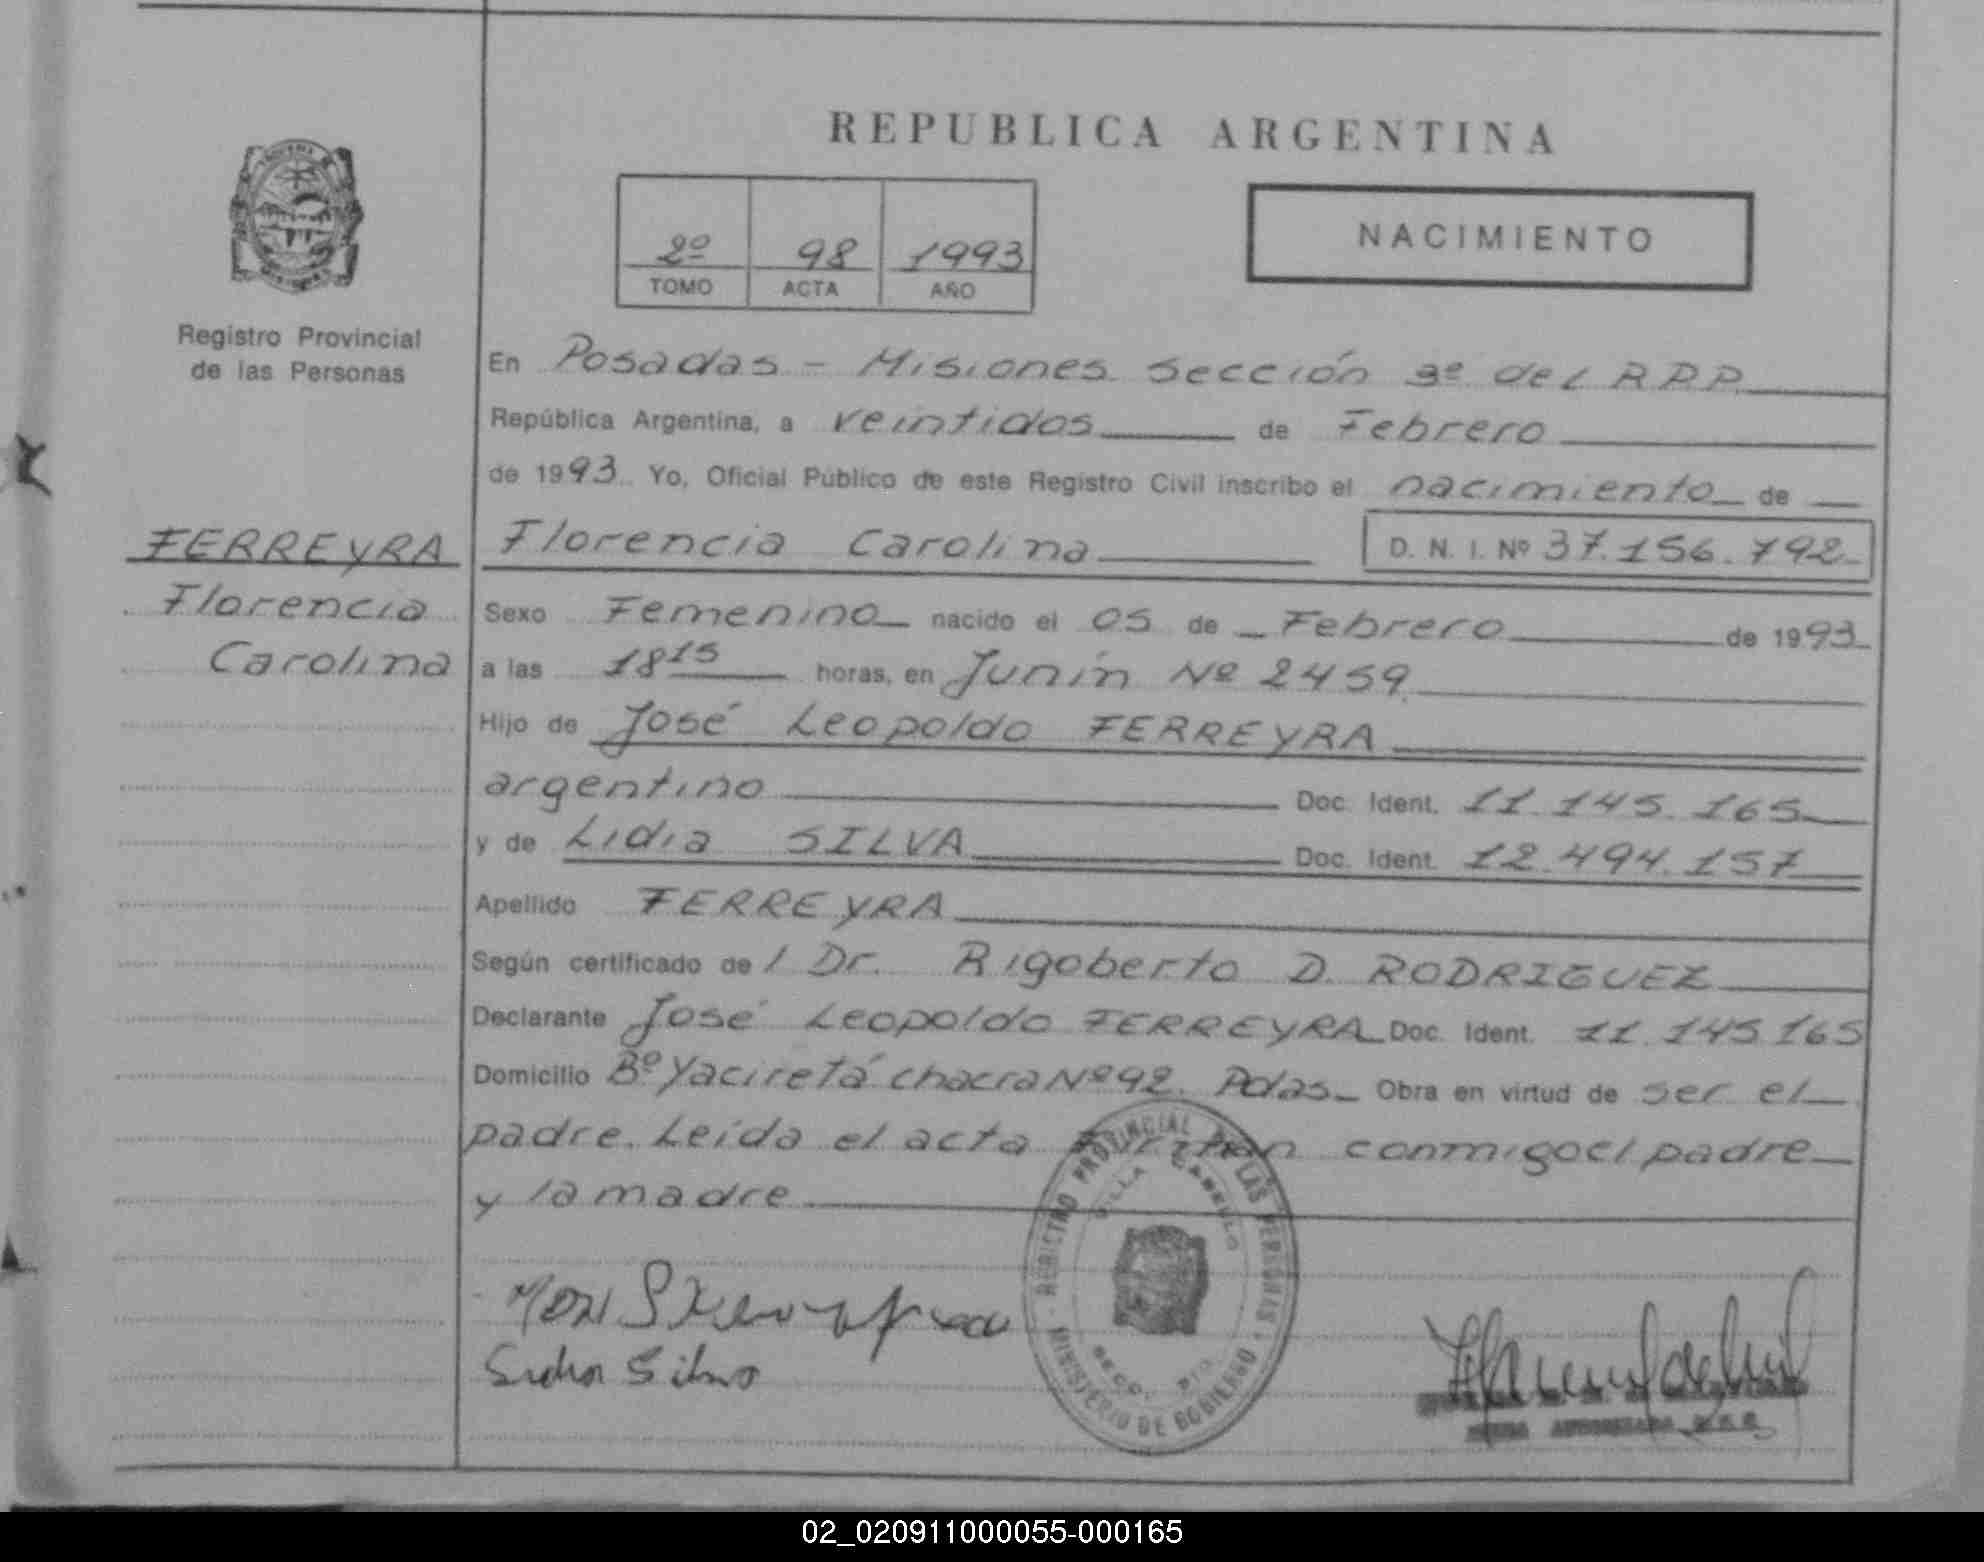 REPUBLICA ARGENTINA
2º 98 1993
TOMO ACTA AÑO
NACIMIENTO
Registro Provincial
de las Personas
FERREYRA
Florencia
Carolina
En Posadas - Misiones Sección 3ª del R.P.P.
República Argentina, a veintidos de Febrero
de 1993. Yo, Oficial Público de este Registro Civil inscribo el nacimiento de
Florencia Carolina D. N. I. Nº 37.156.792
Sexo Femenino nacido el 05 de Febrero de 1993
a las 18 15 horas, en Junín Nº 2459.
Hijo de José Leopoldo FERREYRA
argentino Doc. Ident. 11.145.165
y de Lidia SILVA Doc. Ident. 12.494.157
Apellido FERREYRA
Según certificado de l Dr. Rigoberto D. RODRIGUEZ
Declarante José Leopoldo FERREYRA Doc. Ident. 11.145.165
Domicilio Bº Yaciretá chacra Nº 92. Pdas. Obra en virtud de ser el
padre. Leída el acta conmigo el padre
y la madre
REGISTRO PROVINCIAL DE LAS PERSONAS
VILLA CABELLO
MINISTERIO DE GOBIERNO
Silva
02_020911000055-000165